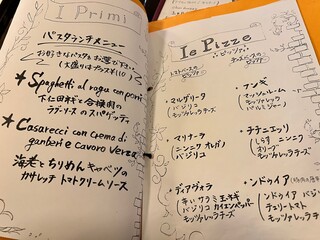 I Primi
パスタランチメニュー
お好きなパスタをお選び下さい
(大盛りはプラス¥110)
★ Spaghetti al ragu con porri
下仁田ネギと合挽肉の
ラグーソースのスパゲッティ
★ Casarecci con crema di
gamberi e cavolo verza
海老とちりめんキャベツの
カサレッチ トマトクリームソース
le Pizze
・ピッツァ・
トマトベースの
ピッツァ
チーズベースの
ピッツァ
・マルゲリータ
バジリコ
モッツァレラチーズ
・マリナーラ
(ニンニク オレガノ
バジリコ
・ディアヴォラ
(辛いサラミ 玉ネギ
バジリコ カイエンペッパー
モッツァレラチーズ
・フンギ
マッシュルーム
モッツァレラ
パルミジャーノ
・チチニエッリ
しらす ニンニク
オリーブ
モッツァレラチーズ
・ンドゥイア
(ンドゥイア バジリコ
チェリートマト
モッツァレラチーズ